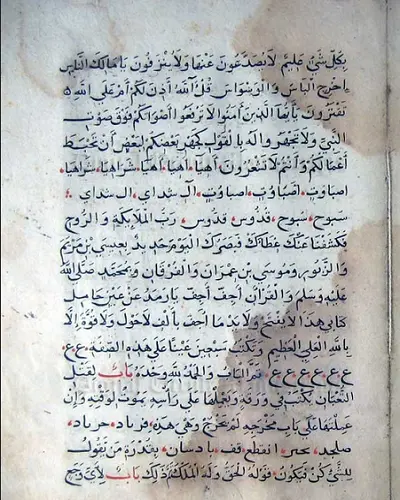 بكل شيء عليم لا يصدعون عنها ولا ينزفون يا مالك الناس
اخرج الباس والوسواس قل الله اذن لكم ام على الله
تفترون يا ايها الذين امنوا لا ترفعوا اصواتكم فوق صوت
النبي ولا تجهروا له بالقول كجهر بعضكم لبعض ان تحبط
اعمالكم وانتم لا تشعرون اهيا اهيا اهيا شراهيا شراهيا
اصباوت اصباوت اصباوت ال شداي ال شداي
سبوح سبوح قدوس قدوس رب الملايكة والروح
فكشفنا عنك غطاك فبصرك اليوم حديد بعيسى بن مريم
والزبور وموسى بن عمران والفرقان وبمحمد صلى الله
عليه وسلم والقران اجف اجف يا رمد عن عين حامل
كتابي هذا لا ينفتح ولا يدما اجف بالف لا حول ولا قوة الا
بالله العلي العظيم وتكتب سبعين عينا على هذه الصفة ع ع
ع ع ع ع ع ع ع الباب والحمد لله وحده باب لقتل
الثعبان يكتب في ورقة ويجعلها على راسه يموت لوقته وان
على باب مخرجه لم يخرج وهي هذه حرباد
انقطع قف بقدرة من يقول
للشيء كن فيكون قوله الحق وله الملك باب لاي وجع